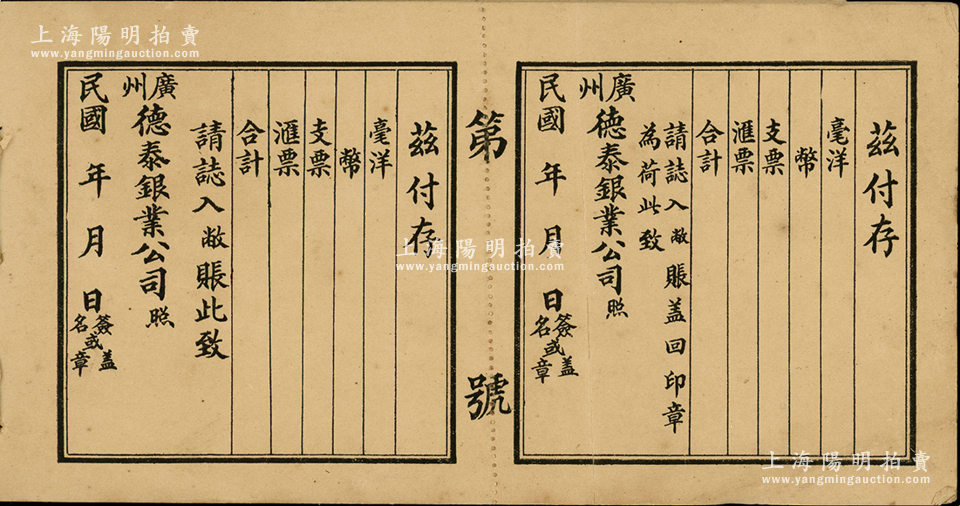 上海陽明拍賣
www.yangmingauction.com
茲付存
毫洋
幣
支票
滙票
合計
請誌入敝賬盖回印章
為荷此致
廣州德泰銀業公司照
民國 年 月 日簽名或盖章
第 號
茲付存
毫洋
幣
支票
滙票
合計
請誌入敝賬此致
廣州德泰銀業公司照
民國 年 月 日簽名或盖章
上海陽明拍賣
www.yangmingauction.com
上海陽明拍賣
www.yangmingauction.com